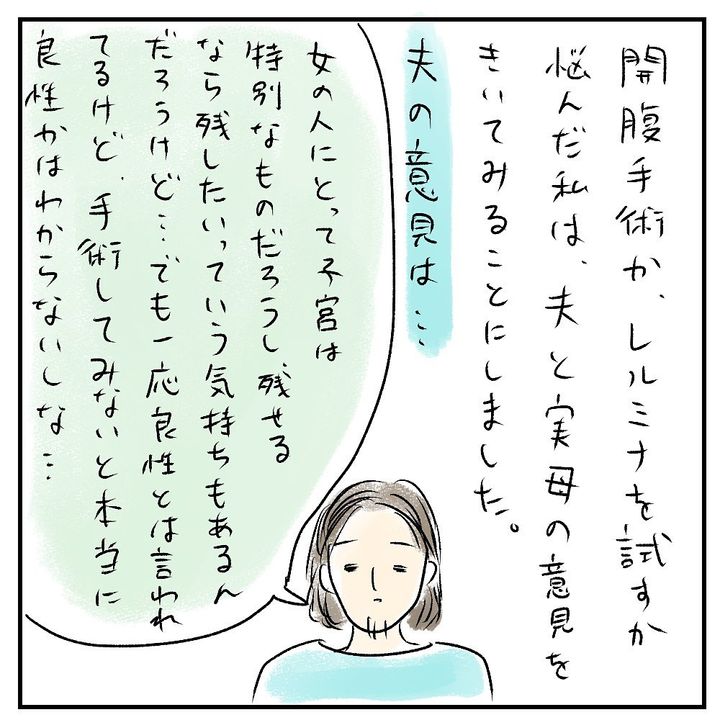 開腹手術か、レルミナを試すか
悩んだ私は、夫と実母の意見を
きいてみることにしました。
夫の意見は…
女の人にとって子宮は
特別なものだろうし、残せる
なら残したいっていう気持ちもあるん
だろうけど…でも一応良性とは言われ
てるけど、手術してみないと本当に
良性かはわからないしな…